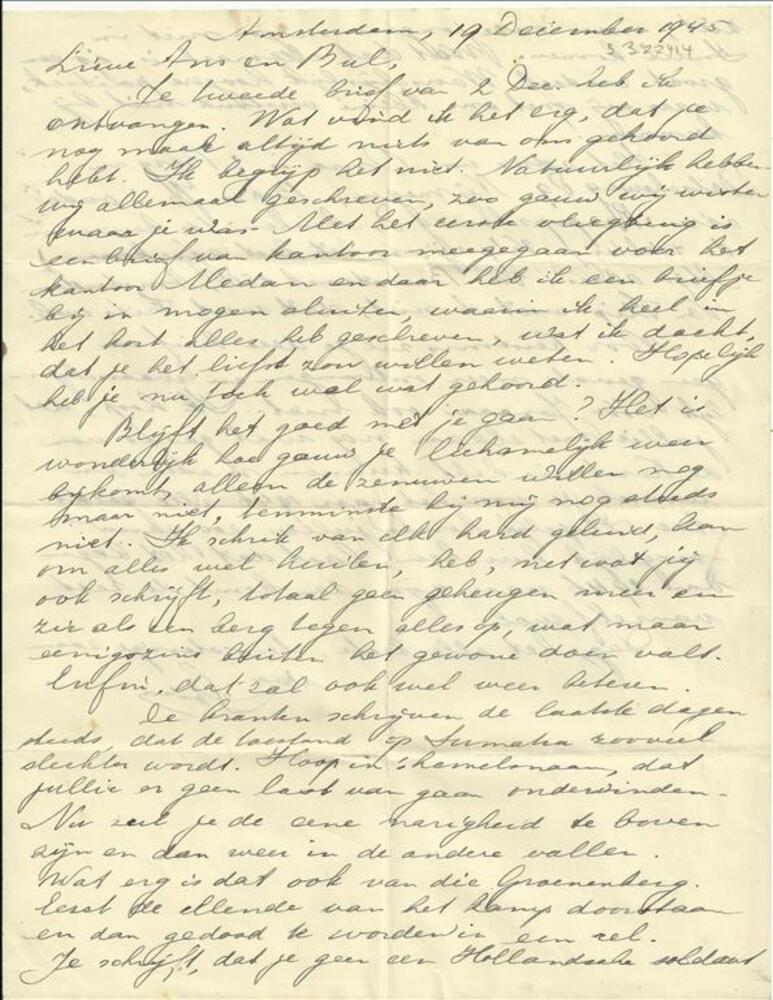 Amsterdam, 19 December 1945
S 322414
Lieve Ans en Bul,
Je tweede brief van 2 Dec. heb ik
ontvangen. Wat vind ik het erg, dat je
nog maar altijd niets van ons gehoord
hebt. Ik begrijp het niet. Natuurlijk hebben
wij allemaal geschreven, zoo gauw wij wisten
waar je was. Met het eerste vliegtuig is
een brief van kantoor meegegaan voor het
kantoor Medan en daar heb ik een briefje
bij in mogen sluiten, waarin ik heel in
het kort alles heb geschreven, wat ik dacht,
dat je het liefst zou willen weten. Hopelijk
heb je nu toch wel wat gehoord.
Blijft het goed met je gaan? Het is
wonderlijk hoe gauw je lichamelijk weer
bijkomt, alleen de zenuwen willen nog
maar niet, tenminste bij mij nog steeds
niet. Ik schrik van elk hard geluid, kan
om alles wel huilen, heb, net wat jij
ook schrijft, totaal geen geheugen meer en
zie als een berg tegen alles op, wat maar
eenigszins buiten het gewone doen valt.
Enfin, dat zal ook wel weer beteren.
De kranten schrijven de laatste dagen
steeds, dat de toestand op Sumatra zooveel
slechter wordt. Hoop in 's hemelsnaam, dat
jullie er geen last van gaan ondervinden.
Nu zul je de eene narigheid te boven
zijn en dan weer in de andere vallen.
Wat erg is dat ook van die Groenenberg.
Eerst de ellende van het kamp doorstaan
en dan gedood te worden in een cel.
Je schrijft, dat je geen een Hollandsche soldaat